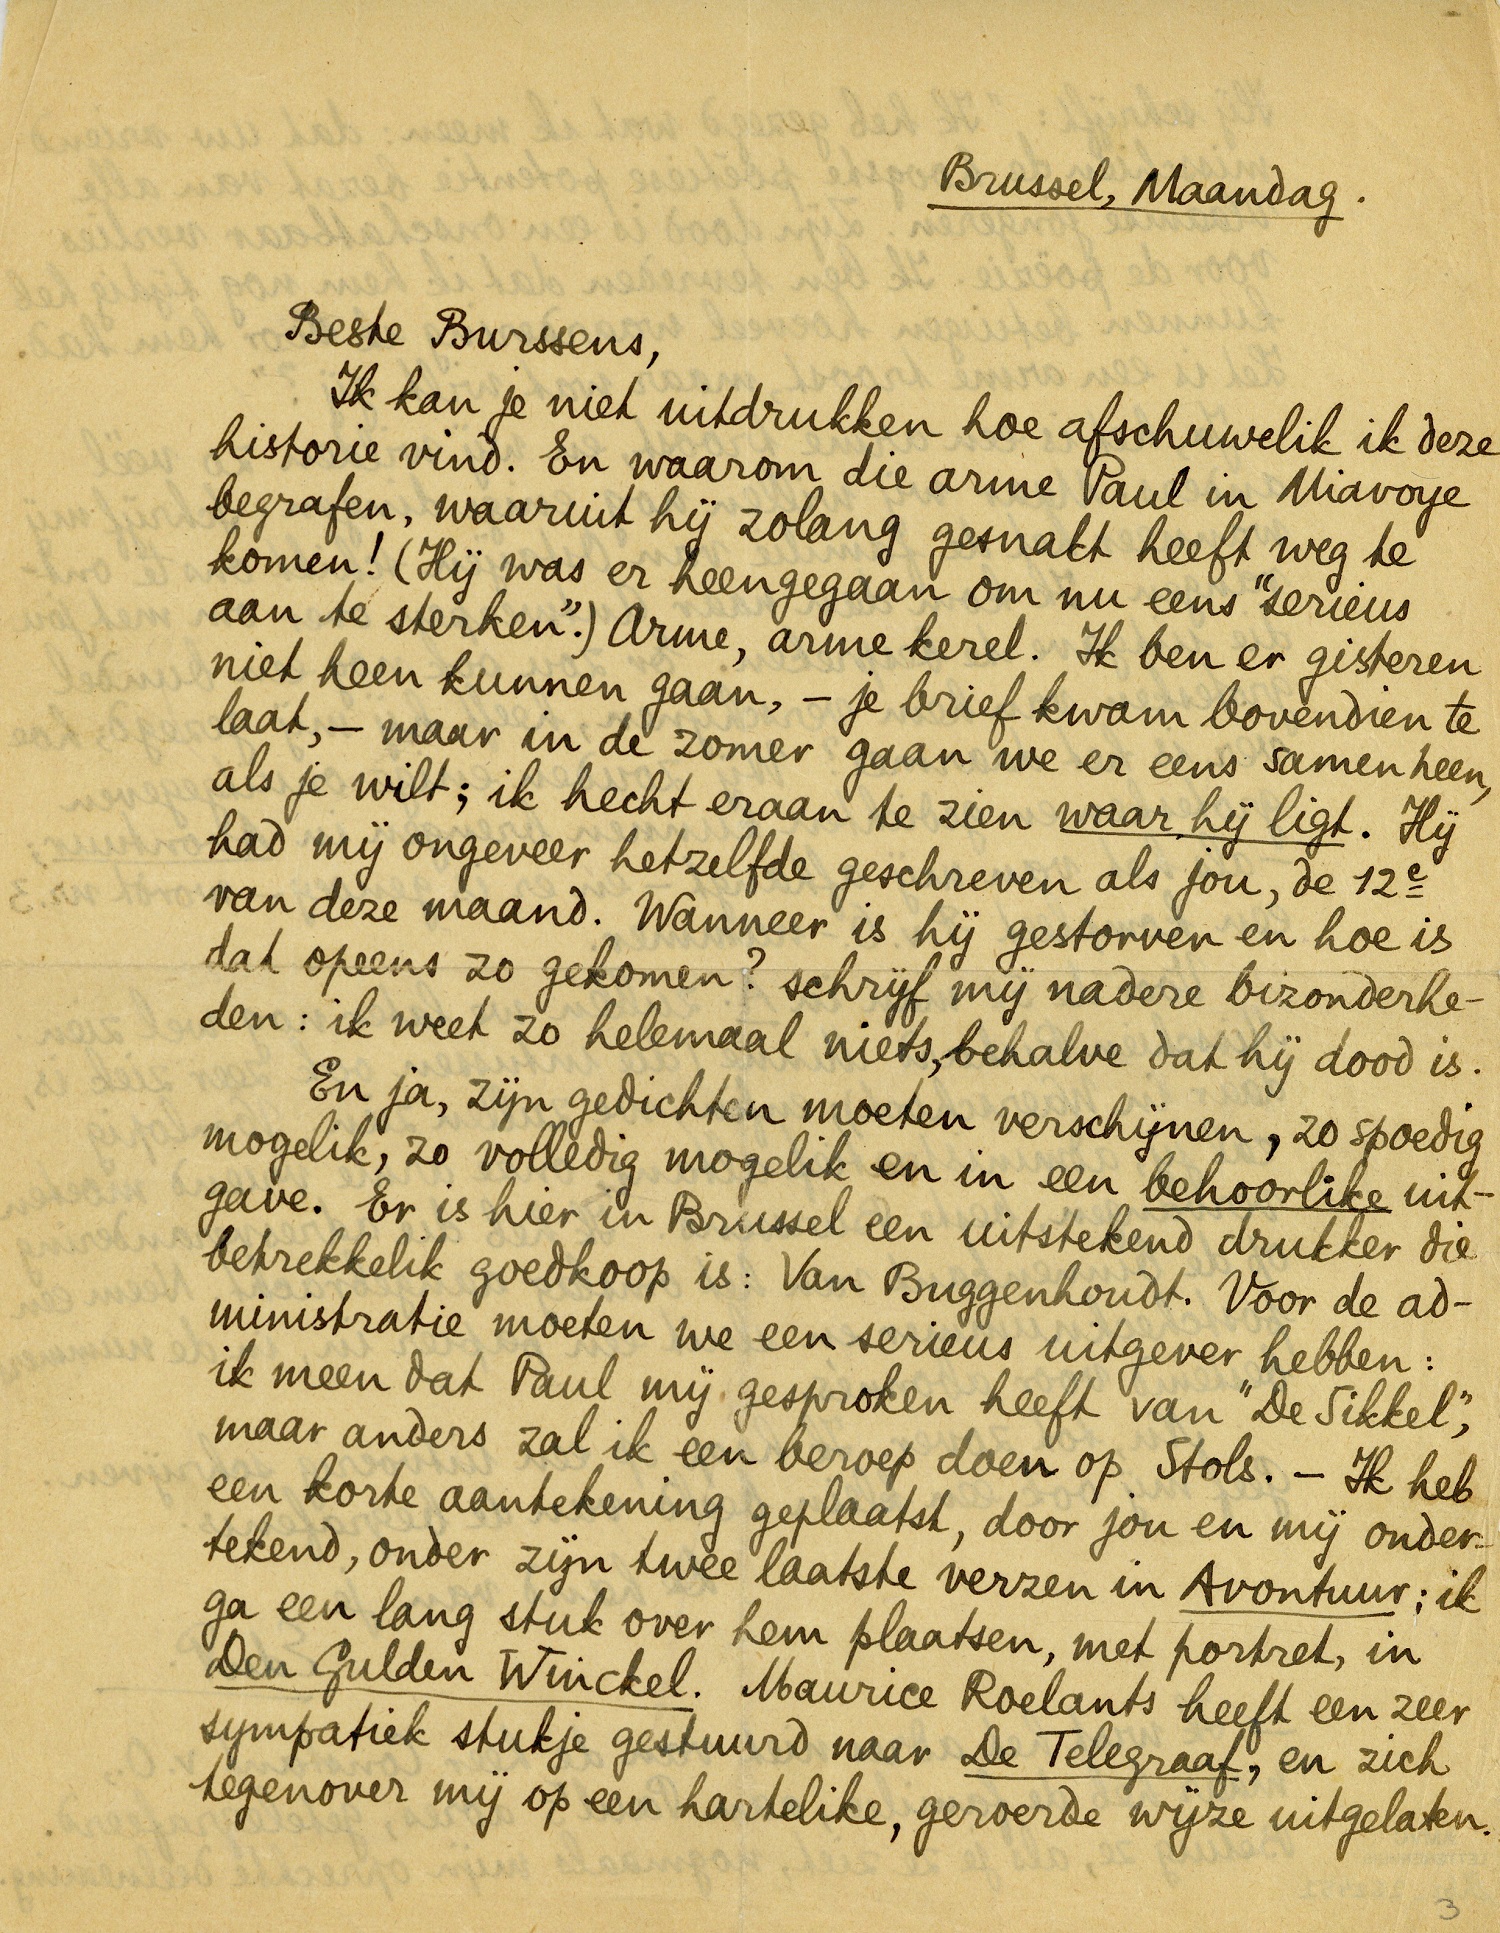 Brussel, Maandag.
Beste Burssens,
Ik kan je niet uitdrukken hoe afschuwelik ik deze
historie vind. En waarom die arme Paul in Miavoye
begrafen, waaruit hij zolang gesnakt heeft weg te
komen! (Hij was er heengegaan om nu eens "serieus
aan te sterken".) Arme, arme kerel. Ik ben er gisteren
niet heen kunnen gaan, – je brief kwam bovendien te
laat, – maar in de zomer gaan we er eens samen heen,
als je wilt; ik hecht eraan te zien waar hij ligt. Hij
had mij ongeveer hetzelfde geschreven als jou, de 12e
van deze maand. Wanneer is hij gestorven en hoe is
dat opeens zo gekomen? schrijf mij nadere bizonderhe-
den: ik weet zo helemaal niets, behalve dat hij dood is.
En ja, zijn gedichten moeten verschijnen, zo spoedig
mogelik, zo volledig mogelik en in een behoorlike uit-
gave. Er is hier in Brussel een uitstekend drukker die
betrekkelik goedkoop is: Van Buggenhoudt. Voor de ad-
ministratie moeten we een serieus uitgever hebben:
ik meen dat Paul mij gesproken heeft van "De Sikkel",
maar anders zal ik een beroep doen op Stols. – Ik heb
een korte aantekening geplaatst, door jou en mij onder-
tekend, onder zijn twee laatste verzen in Avontuur; ik
ga een lang stuk over hem plaatsen, met portret, in
Den Gulden Winckel. Maurice Roelants heeft een zeer
sympatiek stukje gestuurd naar De Telegraaf, en zich
tegenover mij op een hartelike, geroerde wijze uitgelaten.
3